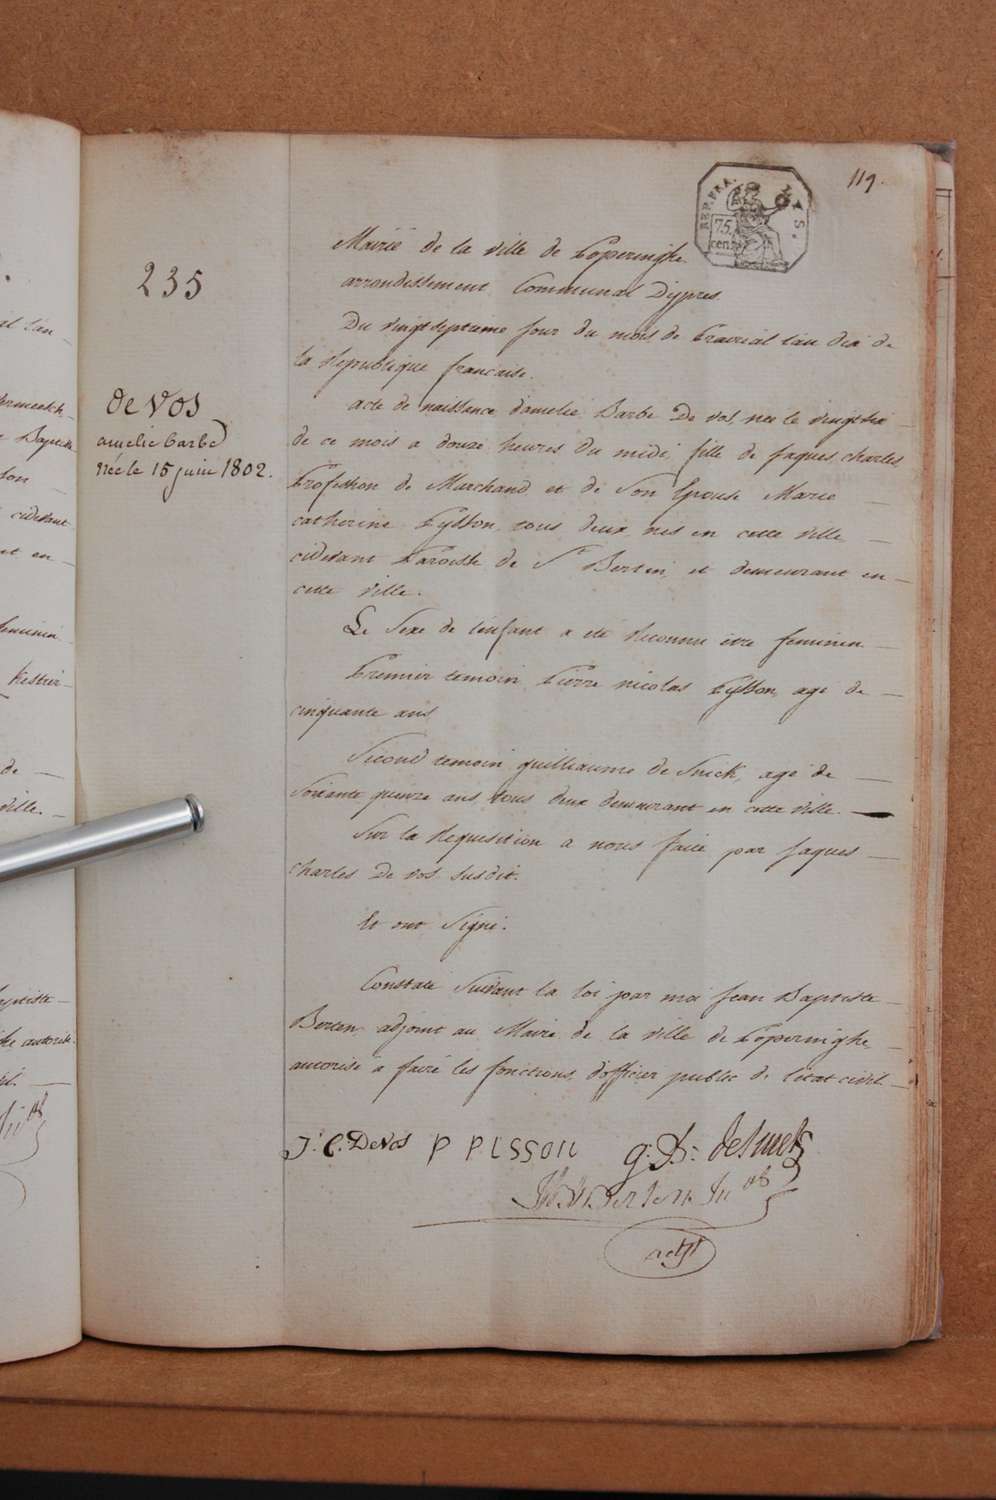 119.
REP. FRA.
75
cent
Mairie de la ville de Poperinghe
arrondissement Communal D'ypres.
235
Du vingt septieme jour du mois de Prairial l'an dix de
la Republique française.
acte de naissance d'amelie Barbe De vos, née le vingt six
de ce mois a douze heures du midi, fille de jaques charles,
Profession de Marchand et de Son Epouse Marie
catherine Pysson, tous deux nés en cette ville
cidevant Paroisse de St Bertin, et demeurant en
cette ville.
De Vos
amelie barbe
née le 15 juin 1802.
Le Sexe de l'enfant a été Reconnu etre feminin
Premier temoin Pierre nicolas Pysson, agé de
cinquante ans
Second temoin guilliaume de Snick, agé de
Soixante quinze ans, tous deux demeurant en cette ville.
Sur la Requisition a nous faite par jaques
charles De vos susdit.
Et ont Signé.
Constaté Suivant la loi par moi jean Baptiste
Berten adjoint au Maire de la ville de Poperinghe
autorisé a faire les fonctions d'officier public de l'etat civil.
J. C. DeVos
P PISSON
adjt
al l'an
Baptiste
cidevant
et en
feminin
de
ville.